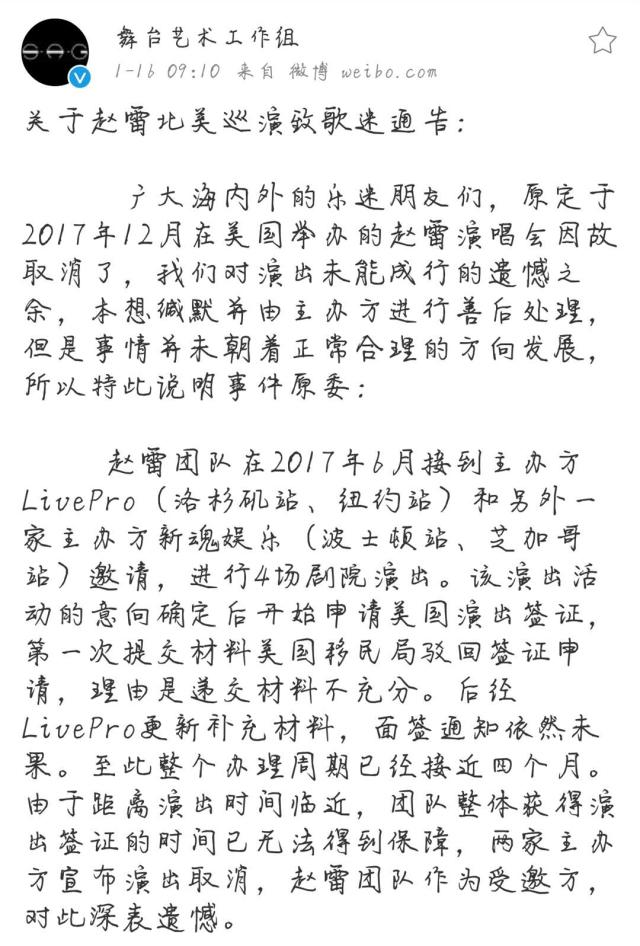 SAG
舞台艺术工作组
V
1-16 09:10 来自 微博 weibo.com
关于赵雷北美巡演致歌迷通告：
广大海内外的乐迷朋友们，原定于
2017年12月在美国举办的赵雷演唱会因故
取消了，我们对演出未能成行的遗憾之
余，本想缄默并由主办方进行善后处理，
但是事情并未朝着正常合理的方向发展，
所以特此说明事件原委：
赵雷团队在2017年6月接到主办方
LivePro（洛杉矶站、纽约站）和另外一
家主办方新魂娱乐（波士顿站、芝加哥
站）邀请，进行4场剧院演出。该演出活
动的意向确定后开始申请美国演出签证，
第一次提交材料美国移民局驳回签证申
请，理由是递交材料不充分。后经
LivePro更新补充材料，面签通知依然未
果。至此整个办理周期已经接近四个月。
由于距离演出时间临近，团队整体获得演
出签证的时间已无法得到保障，两家主办
方宣布演出取消，赵雷团队作为受邀方，
对此深表遗憾。